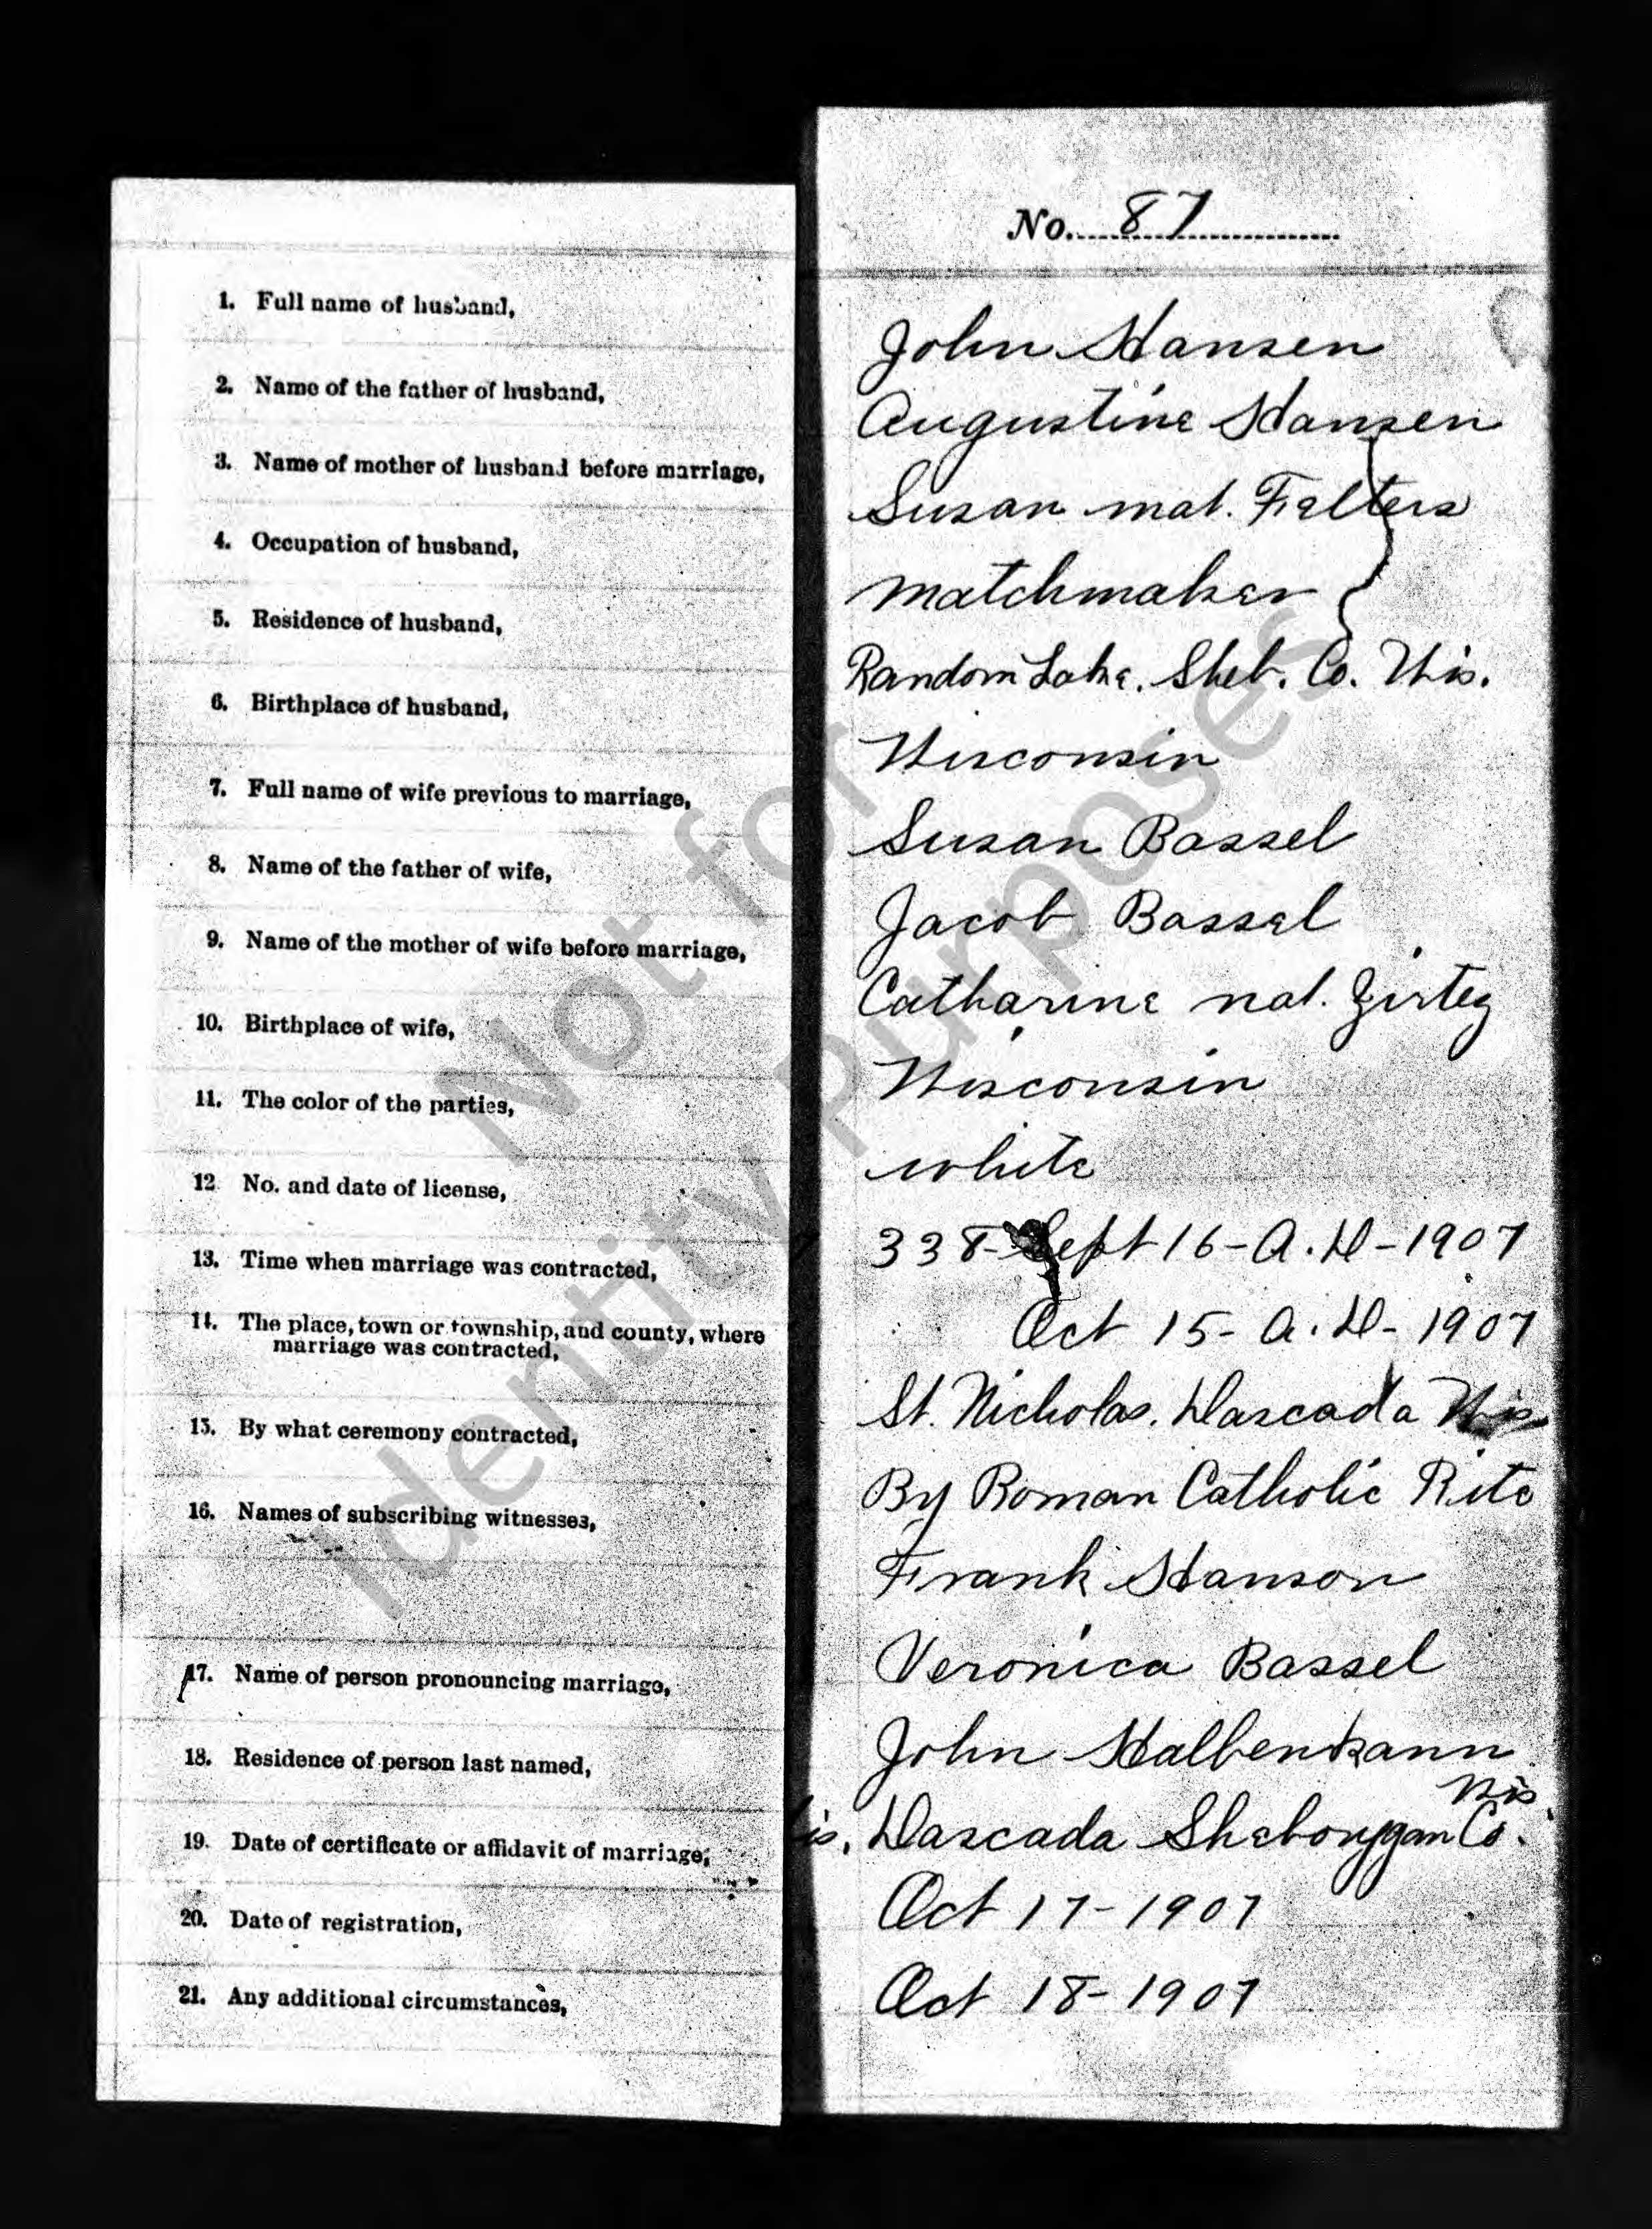 No. 87
1. Full name of husband,
John Hansen
2. Name of the father of husband,
Augustine Hansen
3. Name of mother of husband before marriage,
Susan nat. Felters
4. Occupation of husband,
Matchmaker
5. Residence of husband,
Random Lake. Sheb. Co. Wis.
6. Birthplace of husband,
Wisconsin
7. Full name of wife previous to marriage,
Susan Bassel
8. Name of the father of wife,
Jacob Bassel
9. Name of the mother of wife before marriage,
Catharine nat.
10. Birthplace of wife,
Wisconsin
11. The color of the parties,
white
12 No. and date of license,
338- Sept 16- A. D- 1907
13. Time when marriage was contracted,
Oct 15- A. D- 1907
14. The place, town or township, and county, where
marriage was contracted,
St. Nicholas. Dascada Wis
15. By what ceremony contracted,
By Roman Catholic Rite
16. Names of subscribing witnesses,
Frank Hanson
Veronica Bassel
17. Name of person pronouncing marriage,
John Halbenkann
18. Residence of person last named,
Wis
is. Dascada Sheboygan Co.
19. Date of certificate or affidavit of marriage,
Oct 17- 1907
20. Date of registration,
Oct 18- 1907
21. Any additional circumstances,
Not for
Identity Purposes